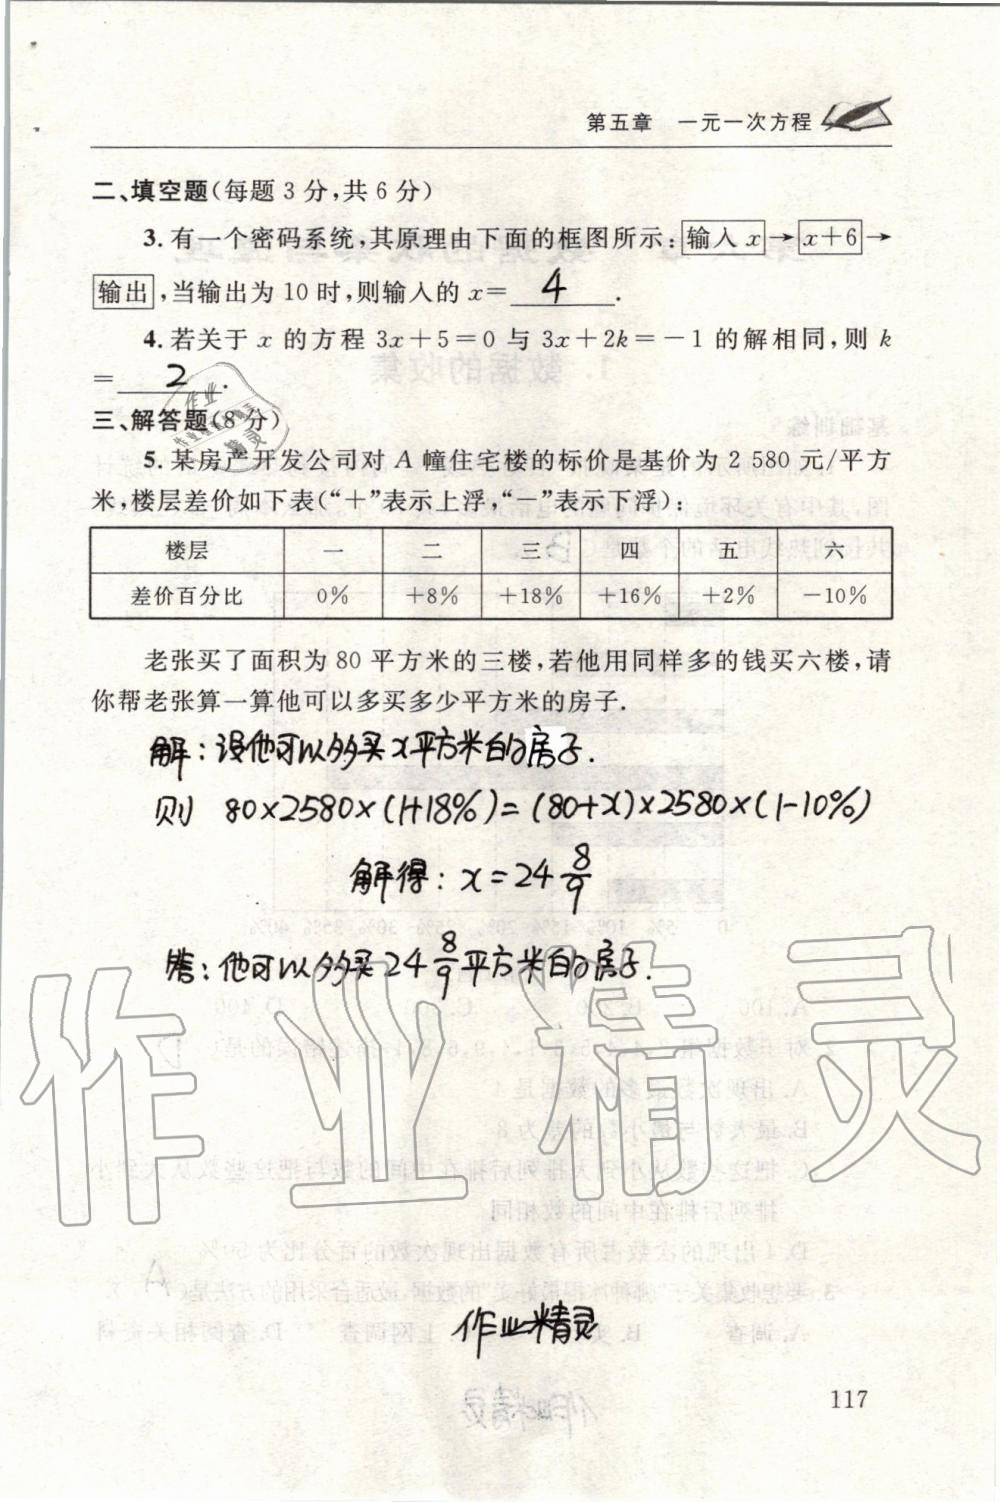 第五章 一元一次方程
二、填空题(每题 3 分,共 6 分)
3. 有一个密码系统,其原理由下面的框图所示: 输入 x → x+6 →
输出 ,当输出为 10 时,则输入的 x= 4 .
4. 若关于 x 的方程 3x+5=0 与 3x+2k=-1 的解相同,则 k
= 2 .
三、解答题(8 分)
5. 某房产开发公司对 A 幢住宅楼的标价是基价为 2 580 元/平方
米,楼层差价如下表(“+”表示上浮,“-”表示下浮):
楼层 一 二 三 四 五 六
差价百分比 0% +8% +18% +16% +2% -10%
老张买了面积为 80 平方米的三楼,若他用同样多的钱买六楼,请
你帮老张算一算他可以多买多少平方米的房子.
解:设他可以多买x平方米的房子.
则 80×2580×(1+18%)=(80+x)×2580×(1-10%)
解得: x=24 8/9
答:他可以多买24 8/9平方米的房子.
作业精灵
作业精灵
117